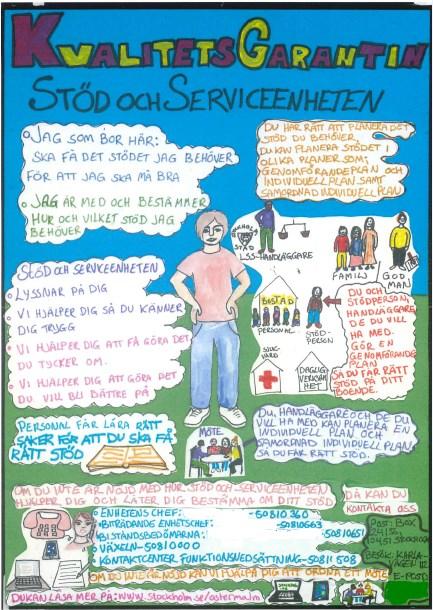 KVALITETSGARANTIN
STÖD OCH SERVICEENHETEN
JAG SOM BOR HÄR:
SKA FÅ DET STÖDET JAG BEHÖVER
FÖR ATT JAG SKA MÅ BRA
JAG ÄR MED OCH BESTÄMMER
HUR OCH VILKET STÖD JAG
BEHÖVER
DU HAR RÄTT ATT PLANERA DET
STÖD DU BEHÖVER
DU KAN PLANERA STÖDET I
OLIKA PLANER SOM:
GENOMFÖRANDEPLAN OCH
INDIVIDUELL PLAN SAMT
SAMORDNAD INDIVIDUELL PLAN
STOCKHOLMS
STAD
LSS-HANDLÄGGARE
FAMILJ
GOD
MAN
STÖD OCH SERVICEENHETEN
LYSSNAR PÅ DIG
VI HJÄLPER DIG SÅ DU KÄNNER
DIG TRYGG
VI HJÄLPER DIG ATT FÅ GÖRA DET
DU TYCKER OM.
VI HJÄLPER DIG ATT GÖRA DET
DU VILL BLI BÄTTRE PÅ
BOSTAD
PERSONAL
STÖD-
PERSON
SJUK-
VÅRD
DAGLIG
VERKSAM
HET
DU OCH
STÖDPERSON,
HANDLÄGGARE
DE DU VILL
HA MED.
GÖR EN
GENOMFÖRANDE
PLAN
SÅ DU FÅR RÄTT
STÖD PÅ DITT
BOENDE.
PERSONAL FÅR LÄRA RÄTT
SAKER FÖR ATT DU SKA FÅ
RÄTT STÖD
MÖTE
DU, HANDLÄGGARE OCH DE DU
VILL HA MED KAN PLANERA EN
INDIVIDUELL PLAN OCH
SAMORDNAD INDIVIDUELL PLAN
SÅ DU FÅR RÄTT STÖD.
OM DU INTE ÄR NÖJD MED HUR STÖD OCH SERVICEENHETEN
HJÄLPER DIG OCH LÅTER DIG BESTÄMMA OM DITT STÖD
DÅ KAN DU
KONTAKTA OSS
ENHETENS CHEF: -50810360
BITRÄDANDE ENHETSCHEF: -50810663
BISTÅNDSBEDÖMARNA: -50810651
VÄXELN -50810000
KONTAKTCENTER FUNKTIONSNEDSÄTTNING -50811508
POST: BOX
24156
10451 STOCKHOLM
BESÖK: KARLA-
VÄGEN 112
E-POST:
OM DU INTE ÄR NÖJD KAN VI HJÄLPA DIG ATT ORDNA ETT MÖTE
DU KAN LÄSA MER PÅ: WWW.STOCKHOLM.SE/OSTERMALM